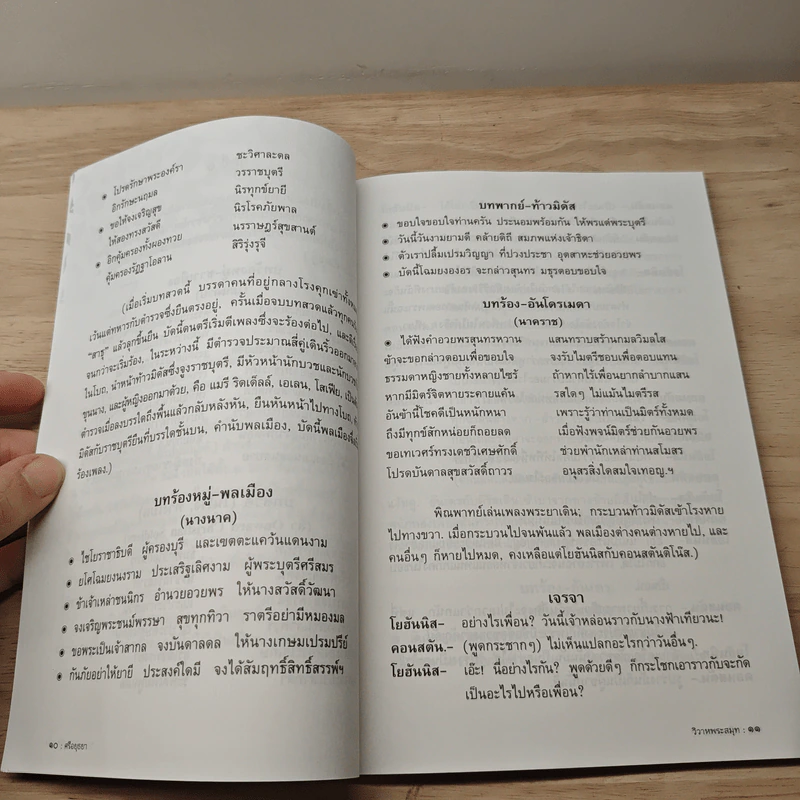 ๏ โปรดรักษาพระองค์รา ชะวิศาละดล
อีกรักษะนฤมล วรราชบุตรี
๏ ขอให้จงเจริญสุข นิรทุกข์ยายี
ให้สองทรงสวัสดี นิรโรคภัยพาล
๏ อีกคุ้มครองทั้งผองทวย นรราษฎร์สุขสานต์
คุ้มครองรัฏฐาโอฬาน สิริรุ่งรุจี
(เมื่อเริ่มบทสวดนี้ บรรดาคนที่อยู่กลางโรงคุกเข่าทั้งหมด
เว้นแต่ทหารกับตำรวจซึ่งยืนตรงอยู่, ครั้นเมื่อจบบทสวดแล้วทุกคน
“สาธุ” แล้วลุกขึ้นยืน บัดนี้ดนตรีเริ่มตีเพลงซึ่งจะร้องต่อไป,
จนกว่าจะเริ่มร้อง, ในระหว่างนี้ มีตำรวจประมาณสี่คู่เดินริ้วออกมา
ในโบถ, นำหน้าท้าวมิดัสซึ่งจูงราชบุตรี, มีหัวหน้านักบวชและนักบวช
ขุนนาง, และผู้หญิงออกมาด้วย, คือ แมรี ริดเด็ลล์, เอเลน, โสเฟีย,
ตำรวจเมื่อลงบรรไดถึงพื้นแล้วกลับหลังหัน, ยืนหันหน้าไปทางโบถ,
มิดัสกับราชบุตรียืนที่บรรไดชั้นบน, คำนับพลเมือง, บัดนี้พลเมือง
ร้องเพลง.)
บทร้องหมู่-พลเมือง
(นางนาค)
๏ ไชโยราชาธิบดี ผู้ครองบุรี และเขตตะแคว้นแดนงาม
๏ ยโศโฉมยงนงราม ประเสริฐเลิศงาม ผู้พระบุตรีศรีสมร
๏ ข้าเจ้าเหล่าชนนิกร อำนวยอวยพร ให้นางสวัสดิ์วัฒนา
๏ จงเจริญพระชนม์พรรษา สุขทุกทิวา ราตรีอย่ามีหมองมล
๏ ขอพระเป็นเจ้าสากล จงบันดาลดล ให้นางเกษมเปรมปรีย์
๏ กันภัยอย่าให้ยายี ประสงค์ใดมี จงได้สัมฤทธิ์สิทธิ์สรรพ์ฯ
๑๐ : ศรีอยุธยา
บทพากย์-ท้าวมิดัส
๏ ขอบใจขอบใจท่านครัน ประนอมพร้อมกัน ให้พรแด่พระบุตรี
๏ วันนี้วันงามยามดี คล้ายดิถี สมภพแห่งเจ้าธิดา
๏ ตัวเราปลื้มเปรมวิญญา ที่ปวงประชา อุตสาหะช่วยอวยพร
๏ บัดนี้โฉมยงองอร จะกล่าวสุนทร มธุรตอบขอบใจ
บทร้อง-อันโดรเมดา
(นาคราช)
๏ ได้ฟังคำอวยพรสุนทรหวาน แสนทราบสร้านกมลวิมลใส
ข้าจะขอกล่าวตอบเพื่อขอบใจ จงรับไมตรีชอบเพื่อตอบแทน
ธรรมดาหญิงชายทั้งหลายไซร้ ถ้าหากไร้เพื่อนยากลำบากแสน
หากมีมิตร์จิตหายระคายแค้น รสใดๆ ไม่แม้นไมตรีรส
อันข้านี้โชคดีเป็นหนักหนา เพราะรู้ว่าท่านเป็นมิตร์ทั้งหมด
ถึงมีทุกข์สักหน่อยก็ถอยลด เมื่อฟังพจน์มิตร์ช่วยกันอวยพร
ขอเทเวศร์ทรงเดชวิเศษศักดิ์ ช่วยพำนักเหล่าท่านสโมสร
โปรดบันดาลสุขสวัสดิ์ถาวร อนุสรสิ่งใดสมใจเทอญ.ฯ
พิณพาทย์เล่นเพลงพระยาเดิน; กระบวนท้าวมิดัสเข้าโรงหาย
ไปทางขวา. เมื่อกระบวนไปจนพ้นแล้ว พลเมืองต่างคนต่างหายไป, และ
คนอื่นๆ ก็หายไปหมด, คงเหลือแต่โยฮันนิสกับคอนสตันติโน้ส.)
เจรจา
โยฮันนิส- อย่างไรเพื่อน? วันนี้เจ้าหล่อนราวกับนางฟ้าเทียวนะ!
คอนสตัน.- (พูดกระชากๆ) ไม่เห็นแปลกอะไรกว่าวันอื่นๆ.
โยฮันนิส- เอ๊ะ! นี่อย่างไรกัน? พูดด้วยดีๆ ก็กระโชกเอาราวกับจะกัด
เป็นอะไรไปหรือเพื่อน?
วิวาหพระสมุท : ๑๑